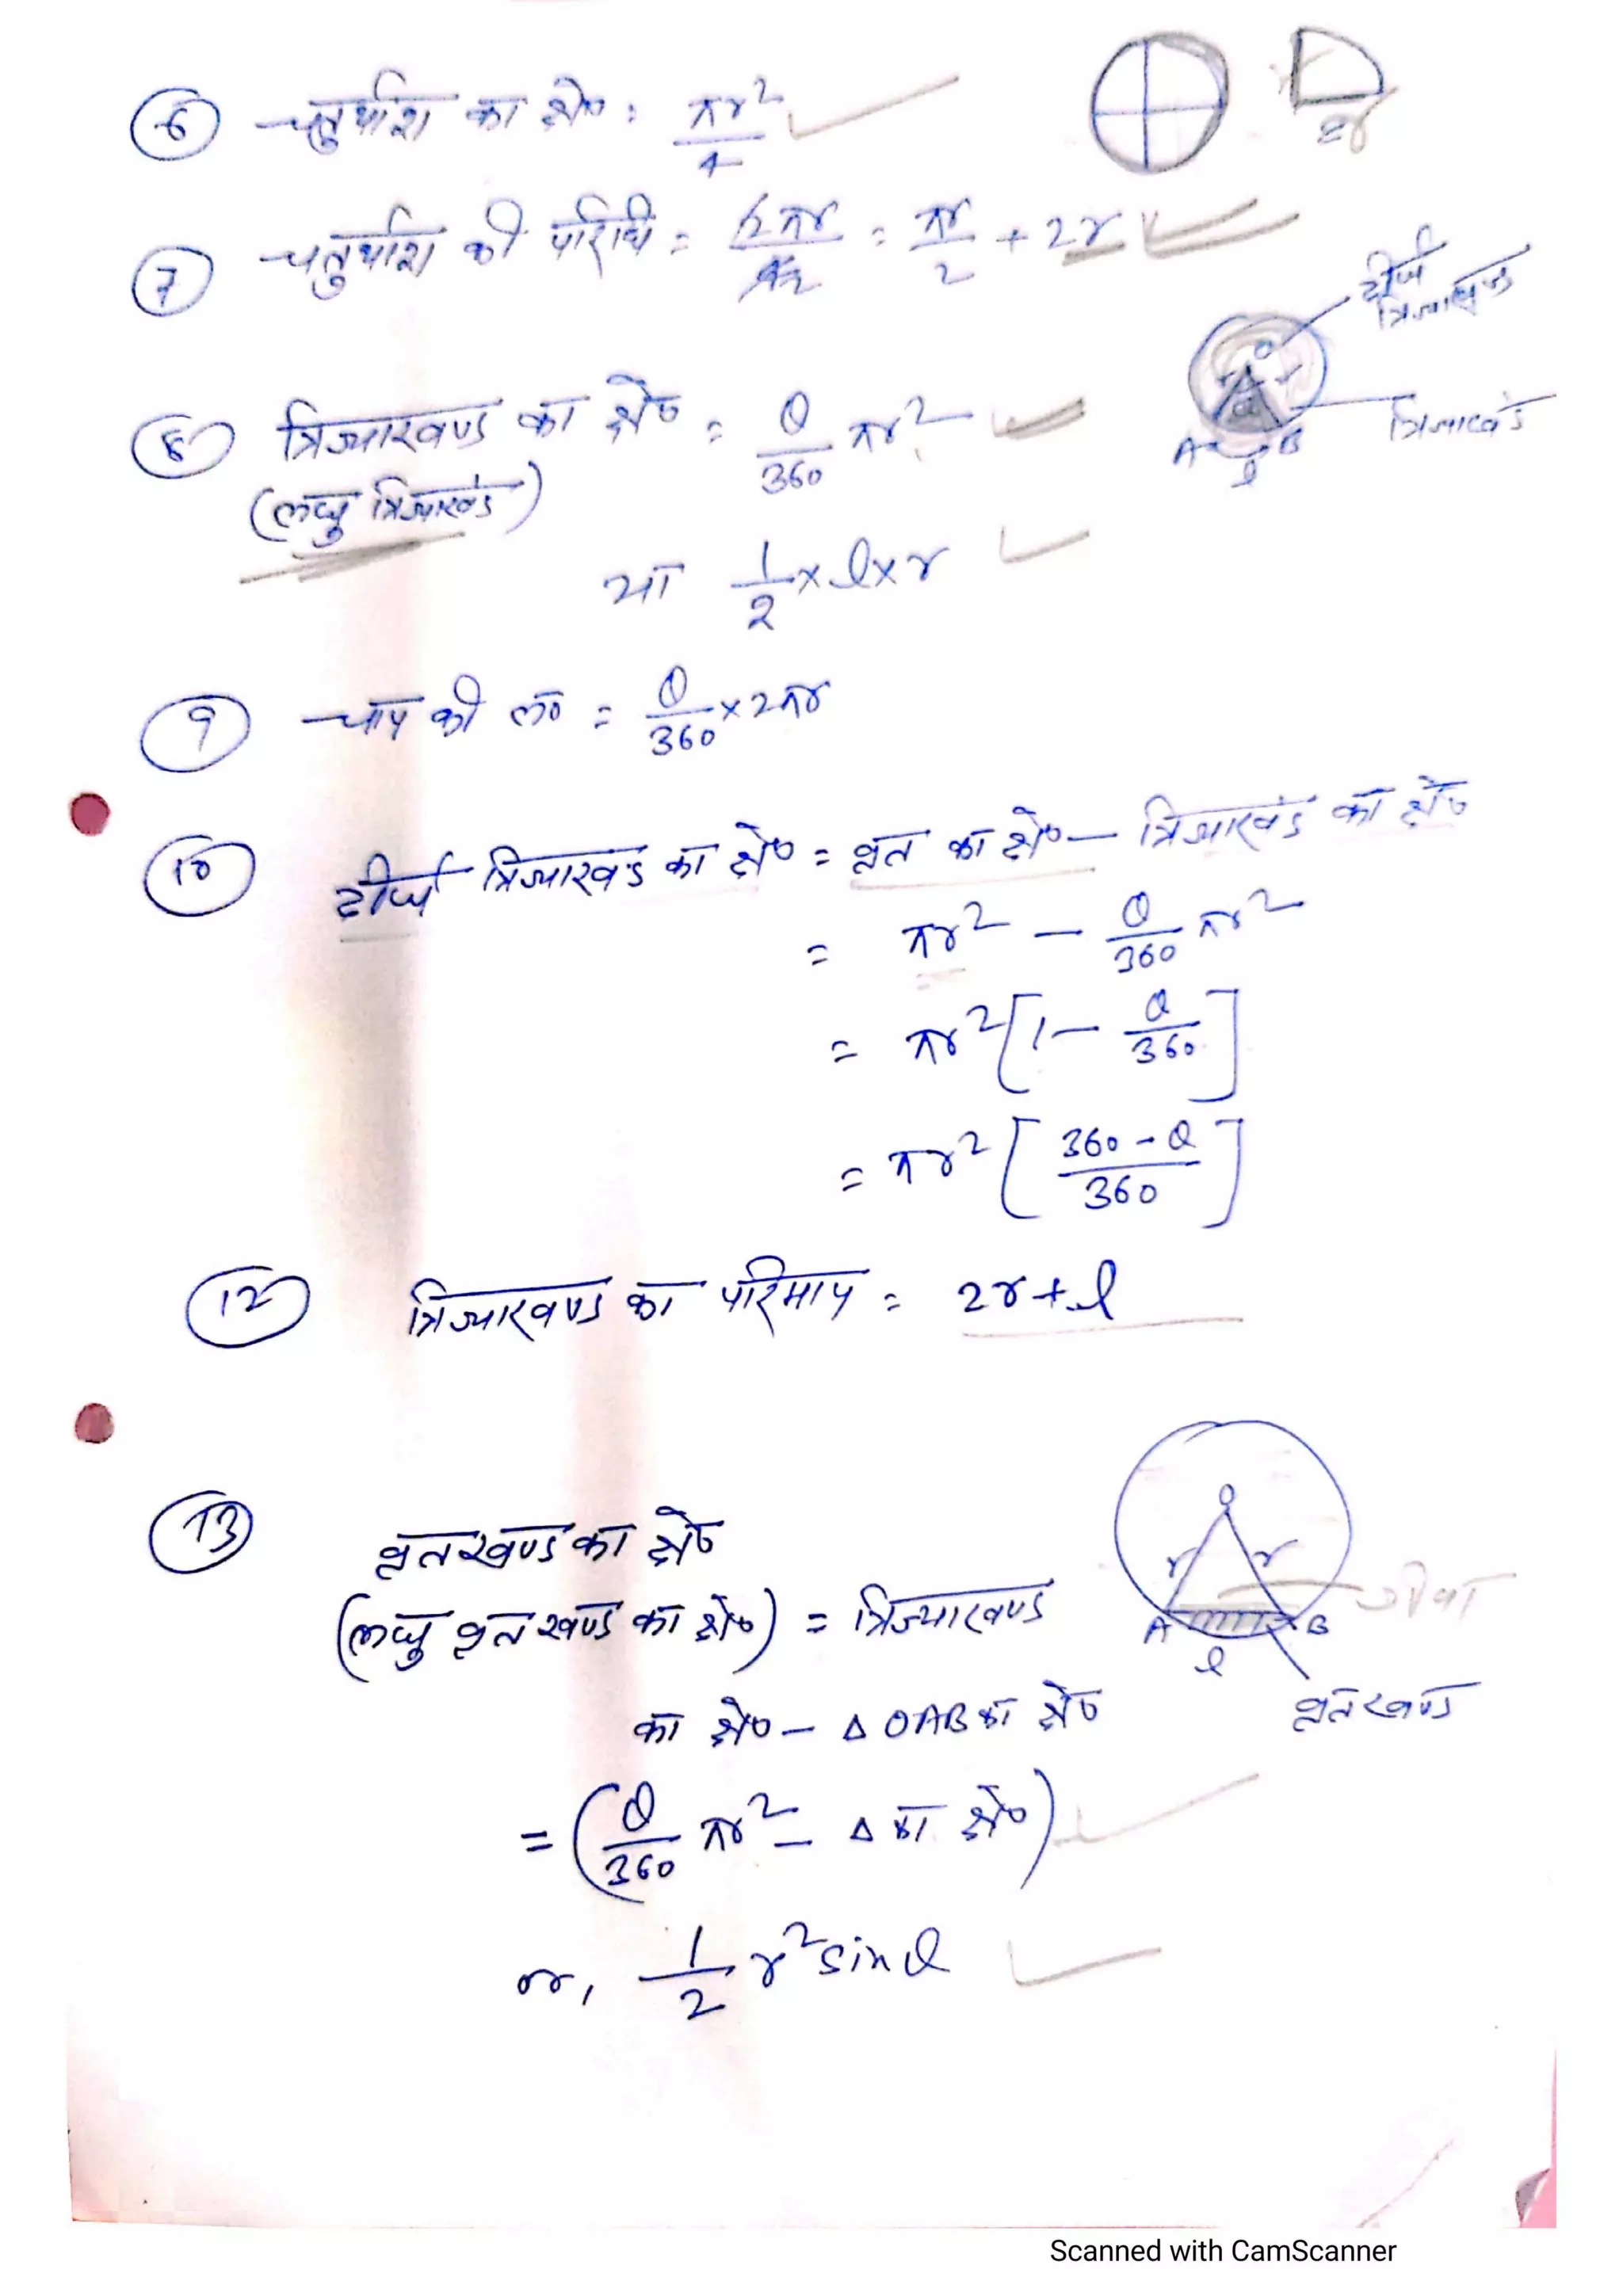 6 चतुर्थांश का क्षे० = πr²/4
7 चतुर्थांश की परिधि = 2πr/4 2 = πr/2 + 2r
दीर्घ त्रिज्याखंड
8 त्रिज्याखण्ड का क्षे० = θ/360 πr²
O r r θ A B l त्रिज्याखंड
(लघु त्रिज्याखंड)
या 1/2 × l × r
9 चाप की ल० = θ/360 × 2πr
10 दीर्घ त्रिज्याखंड का क्षे० = वृत का क्षे० - त्रिज्याखंड का क्षे०
= πr² - θ/360 πr²
= πr² [1 - θ/360]
= πr² [360 - θ/360]
12 त्रिज्याखण्ड का परिमाप = 2r + l
13 वृतखण्ड का क्षे०
(लघु वृतखण्ड का क्षे०) = त्रिज्याखण्ड
O r r A B l जीवा
का क्षे० - Δ OAB का क्षे०
वृतखण्ड
= (θ/360 πr² - Δ का क्षे०)
or, 1/2 r² sin θ
Scanned with CamScanner